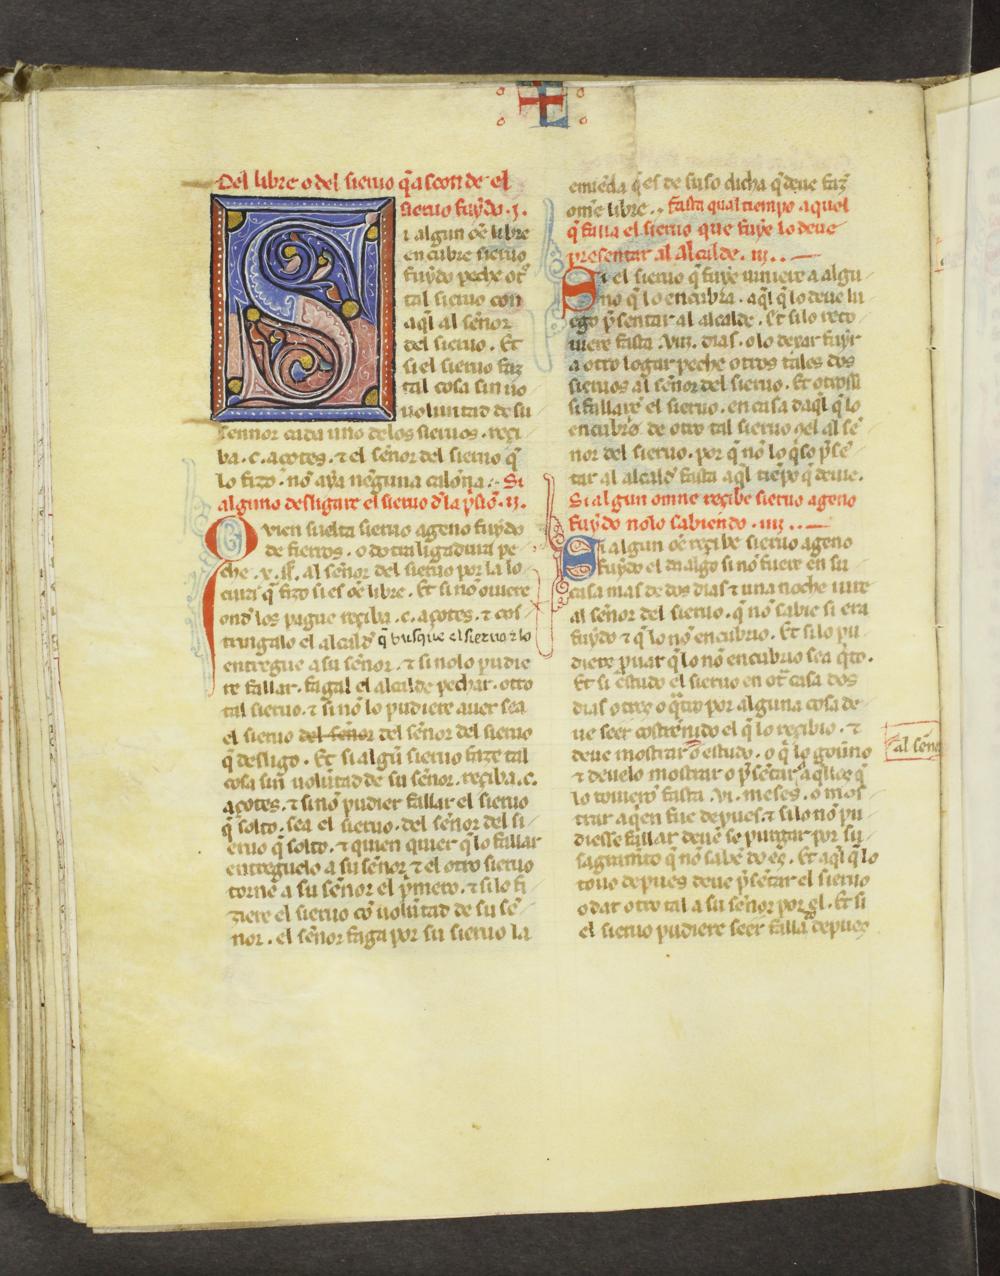 Del libre o del sieruo q̃ asconde el
sieruo fuydo .j.
Si algun oē libre
encubre sieruo
fuydo peche ot°
tal sieruo con
aq̃l al señor
del sieruo. Et
si el sieruo faz
tal cosa sin uo
uoluntad de su
sennor cada uno delos sieruos. reçi
ba .c. açotes. ⁊ el señor del sieruo q̃
lo fizo. no aya ninguna calōna :· Si
alguno desligare el sieruo d'la p̃sion .ij.
Qvien suelta sieruo ageno fuydo
de fierros. o de ligadura pe
che .x. al señor del sieruo por la lo
cura q̃ fizo si es oē libre. Et si nō ouiere
ond los pague reçiba .c. açotes. ⁊ cos
tringalo el alcalđ q̃ busque el sieruo ⁊ lo
entregue a su señor. ⁊ si nolo pudie
re fallar. fagal el alcalde pechar. otro
tal sieruo. ⁊ si nō lo pudiere auer sea
el sieruo del señor del señor del sieruo
q̃ desligo. Et si algũ sieruo faze tal
cosa sin uolũtad de su señor. reçiba .c.
açotes. ⁊ si nō pudier fallar el sieruo
q̃ solto. sea el sieruo. del señor del si
eruo q̃ solto. ⁊ quien quier q̃ lo fallar
entreguelo a su señor ⁊ el otro sieruo
torne a su señor el p̃mero. ⁊ si lo fi
ziere el sieruo cō uolũtad de su se
nor. el señor faga por su sieruo la
emiēda q̃ es de suso dicha q̃ deue faz
ome libre. fasta qual tiempo aquel
q̃ falla el sieruo que fuye lo deue
presentar al Alcalde. iij..
Si el sieruo q̃ fuye uiniere a algu
no q̃ lo encubra. aq̃l q̃ lo deue lu
ego p̃sentar al alcalde. Et si lo reto
uiere fasta .viij. dias. o lo dexar fuyr
a otro logar peche otros tales dos
sieruos al señor del sieruo. Et otrossi
si fallarē el sieruo. en casa daq̃l q̃ lo
encubrio de otro tal sieruo al se
nor del sieruo. por q̃ nō lo q̃so p̃sē
tar al alcalđ fasta aq̃l tiēpo q̃ deue.
Si algun omne reçibe sieruo ageno
fuydo nolo sabiendo. iiij..
Si algun oē reçibe sieruo ageno
fuydo el enalgo si nō fuere en su
casa mas de dos dias ⁊ una noche
al señor del sieruo. q̃ nō sabie si era
fuydo ⁊ q̃ lo nō encubrio. Et si lo pu
diere p̃uar q̃ lo nō encubrio sea q̃to.
Et si estudo el sieruo en ot̃ casa dos
dias o tres o q̃tro por alguna cosa de
ue seer costrenido el q̃ lo reçibio. ⁊
deue mostrar o estudo. o q̃ lo gouĩno
⁊ deuelo mostrar o p̃sētar aq̃llos q̃
lo touierō fasta .vi. meses. o mos
trar aq̃en fue depues. ⁊ si lo nō pu
diesse fallar deuē se purgar por su
sagramēto q̃ nō sabē do es. Et aq̃l q̃ lo
touo depues deue p̃sētar el sieruo
o dar otro tal a su señor por el. Et si
el sieruo pudiere seer falla° depues
al señ